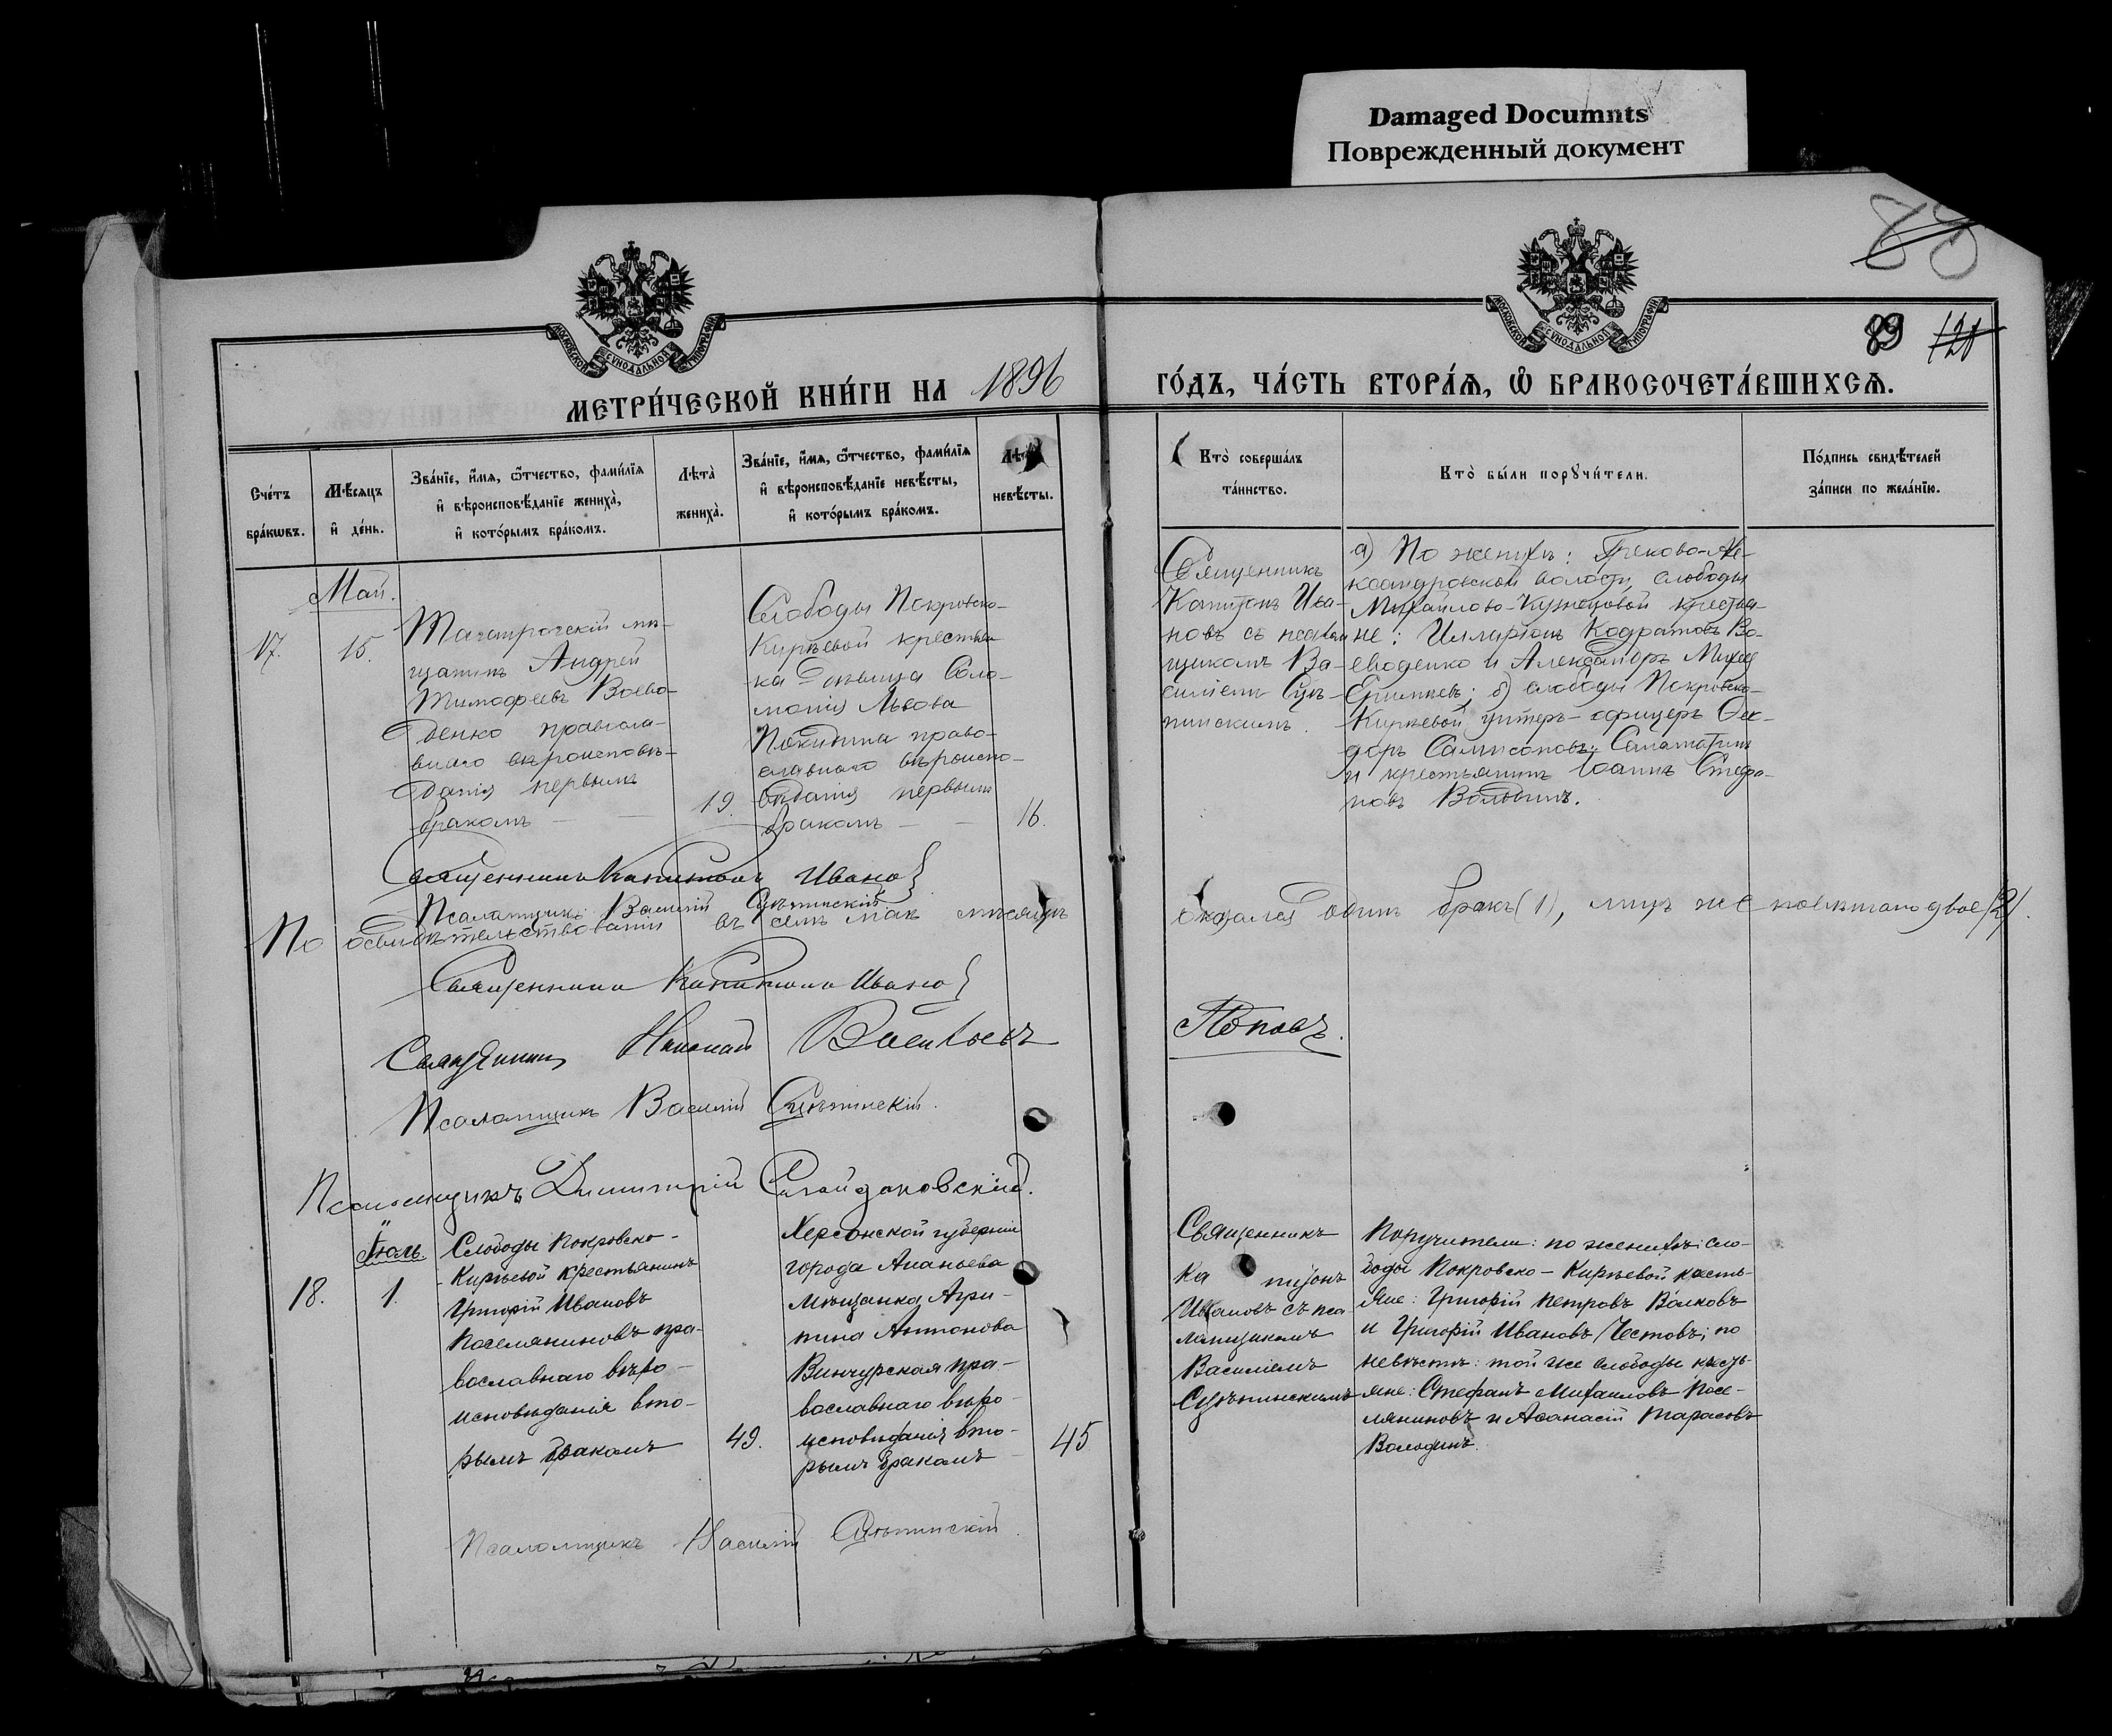 Damaged Documnts
Поврежденный документ
88
89 121
МОСКОВСКОЙ СѴНОДАЛЬНОЙ ТИПОГРАФІИ
МОСКОВСКОЙ СѴНОДАЛЬНОЙ ТИПОГРАФІИ
МЕТРИ́ЧЕСКОЙ КНИ́ГИ НА 1896 ГО́ДЪ, ЧА́СТЬ ВТОРА́Ѧ, Ѿ БРАКОСОЧЕТА́ВШИХСѦ.
Сче́тъ бра́кѡвъ.
Мѣ́сяцъ и҆ де́нь.
Зва́нїе, и҆́мѧ, ѻ҆́тчество, фами́лїѧ
и҆ вѣроисповѣ́данїе жениха̀,
и҆ кото́рымъ бра́комъ.
Лѣта̀ жениха̀.
Зва́нїе, и҆́мѧ, ѻ҆́тчество, фами́лїѧ
и҆ вѣроисповѣ́данїе невѣ́сты,
и҆ кото́рымъ бра́комъ.
невѣ́сты.
Кто̀ соверша́лъ
та́инство.
Кто̀ бы́ли порꙋчи́тели.
По́дпись свидѣ́телей
за́писи по жела́нїю.
Май.
17. 15.
Таганрогскій мѣ-
щанинъ Андрей
Тимофеевъ Воево-
денко православ-
наго вѣроисповѣ-
данія первымъ
бракомъ — — 19.
Слободы Покровско-
Кирѣевой крестьян-
ка дѣвица Соло-
монія Львова
право-
славнаго вѣроиспо-
вѣданія первымъ
бракомъ — — 16.
Священникъ
Капитонъ Ива-
новъ съ псалом-
щикомъ Ва-
силіемъ Сцѣ-
пинскимъ.
а) По женихѣ: Греково-Але-
ксандровской волости, слободы
Михайлово-Кузнецовой крестья-
не: Илларіонъ Кодратовъ Во-
еводенко и Александръ
б) слободы Покровско-
Кирѣевой унтеръ-офицеръ Ѳео-
доръ Сампсоновъ
и крестьянинъ Іоаннъ Стефа-
новъ
Священникъ Капитонъ Ивановъ
Псаломщикъ Василій Сцѣпинскій
По освидѣтельствованіи въ семъ маѣ мѣсяцѣ оказался одинъ бракъ (1), лицъ же повѣнчано двое (2).
Священникъ Капитонъ Ивановъ
Священникъ Николай Васильевъ
Поповъ.
Псаломщикъ Василій Сцѣпинскій.
Псаломщикъ Димитрій
Іюль.
18. 1.
Слободы Покровско-
Кирѣевой крестьянинъ
Григорій Ивановъ
Поселяниновъ пра-
вославнаго вѣро-
исповѣданія вто-
рымъ бракомъ 49.
Херсонской губерніи
города Ананьева
мѣщанка Агри-
пина Антонова
Винчурская пра-
вославнаго вѣро-
исповѣданія вто-
рымъ бракомъ 45
Священникъ
Капитонъ
Ивановъ съ пса
ломщикомъ
Василіемъ
Сцѣпинскимъ
Поручители: по женихѣ: сло-
боды Покровско-Кирѣевой кресть-
яне: Григорій Петровъ Волковъ
и Григорій Ивановъ Честовъ; по
невѣстѣ: той же слободы кресть-
яне: Стефанъ Михаиловъ Посе-
ляниновъ и Аѳанасій Тарасовъ
Володинъ.
Псаломщикъ Василій Сцѣпинскій.